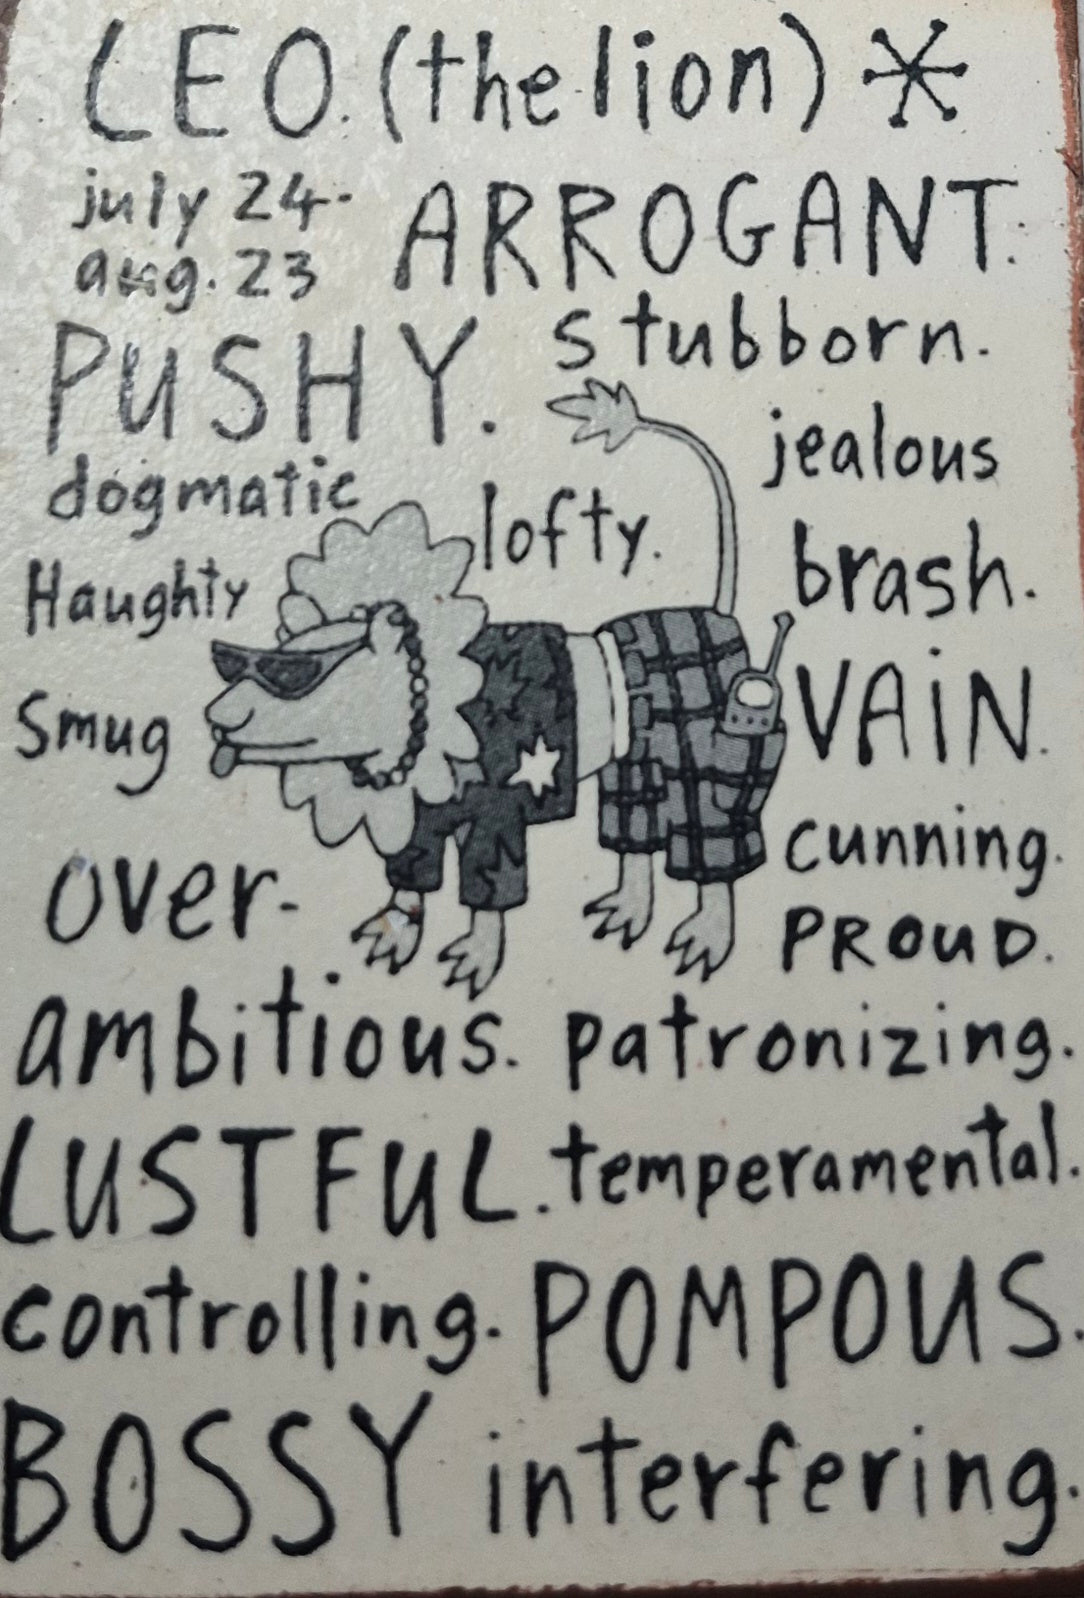 LEO. (the lion) *
july 24-
aug. 23
ARROGANT.
PUSHY. stubborn.
dogmatic
lofty.
jealous
Haughty
brash.
Smug
VAIN.
cunning.
over-
PROUD.
ambitious. patronizing.
LUSTFUL. temperamental.
controlling. POMPOUS.
BOSSY interfering.